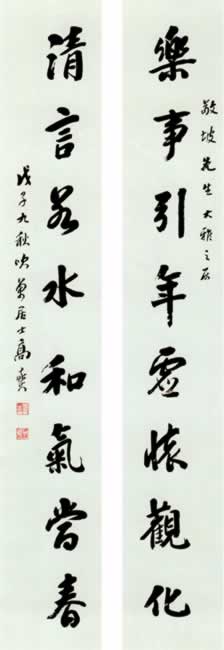 敬坡先生大雅之屬
樂事引年虛懷觀化
清言若水和氣當春
戊子九秋吹萬居士高燮